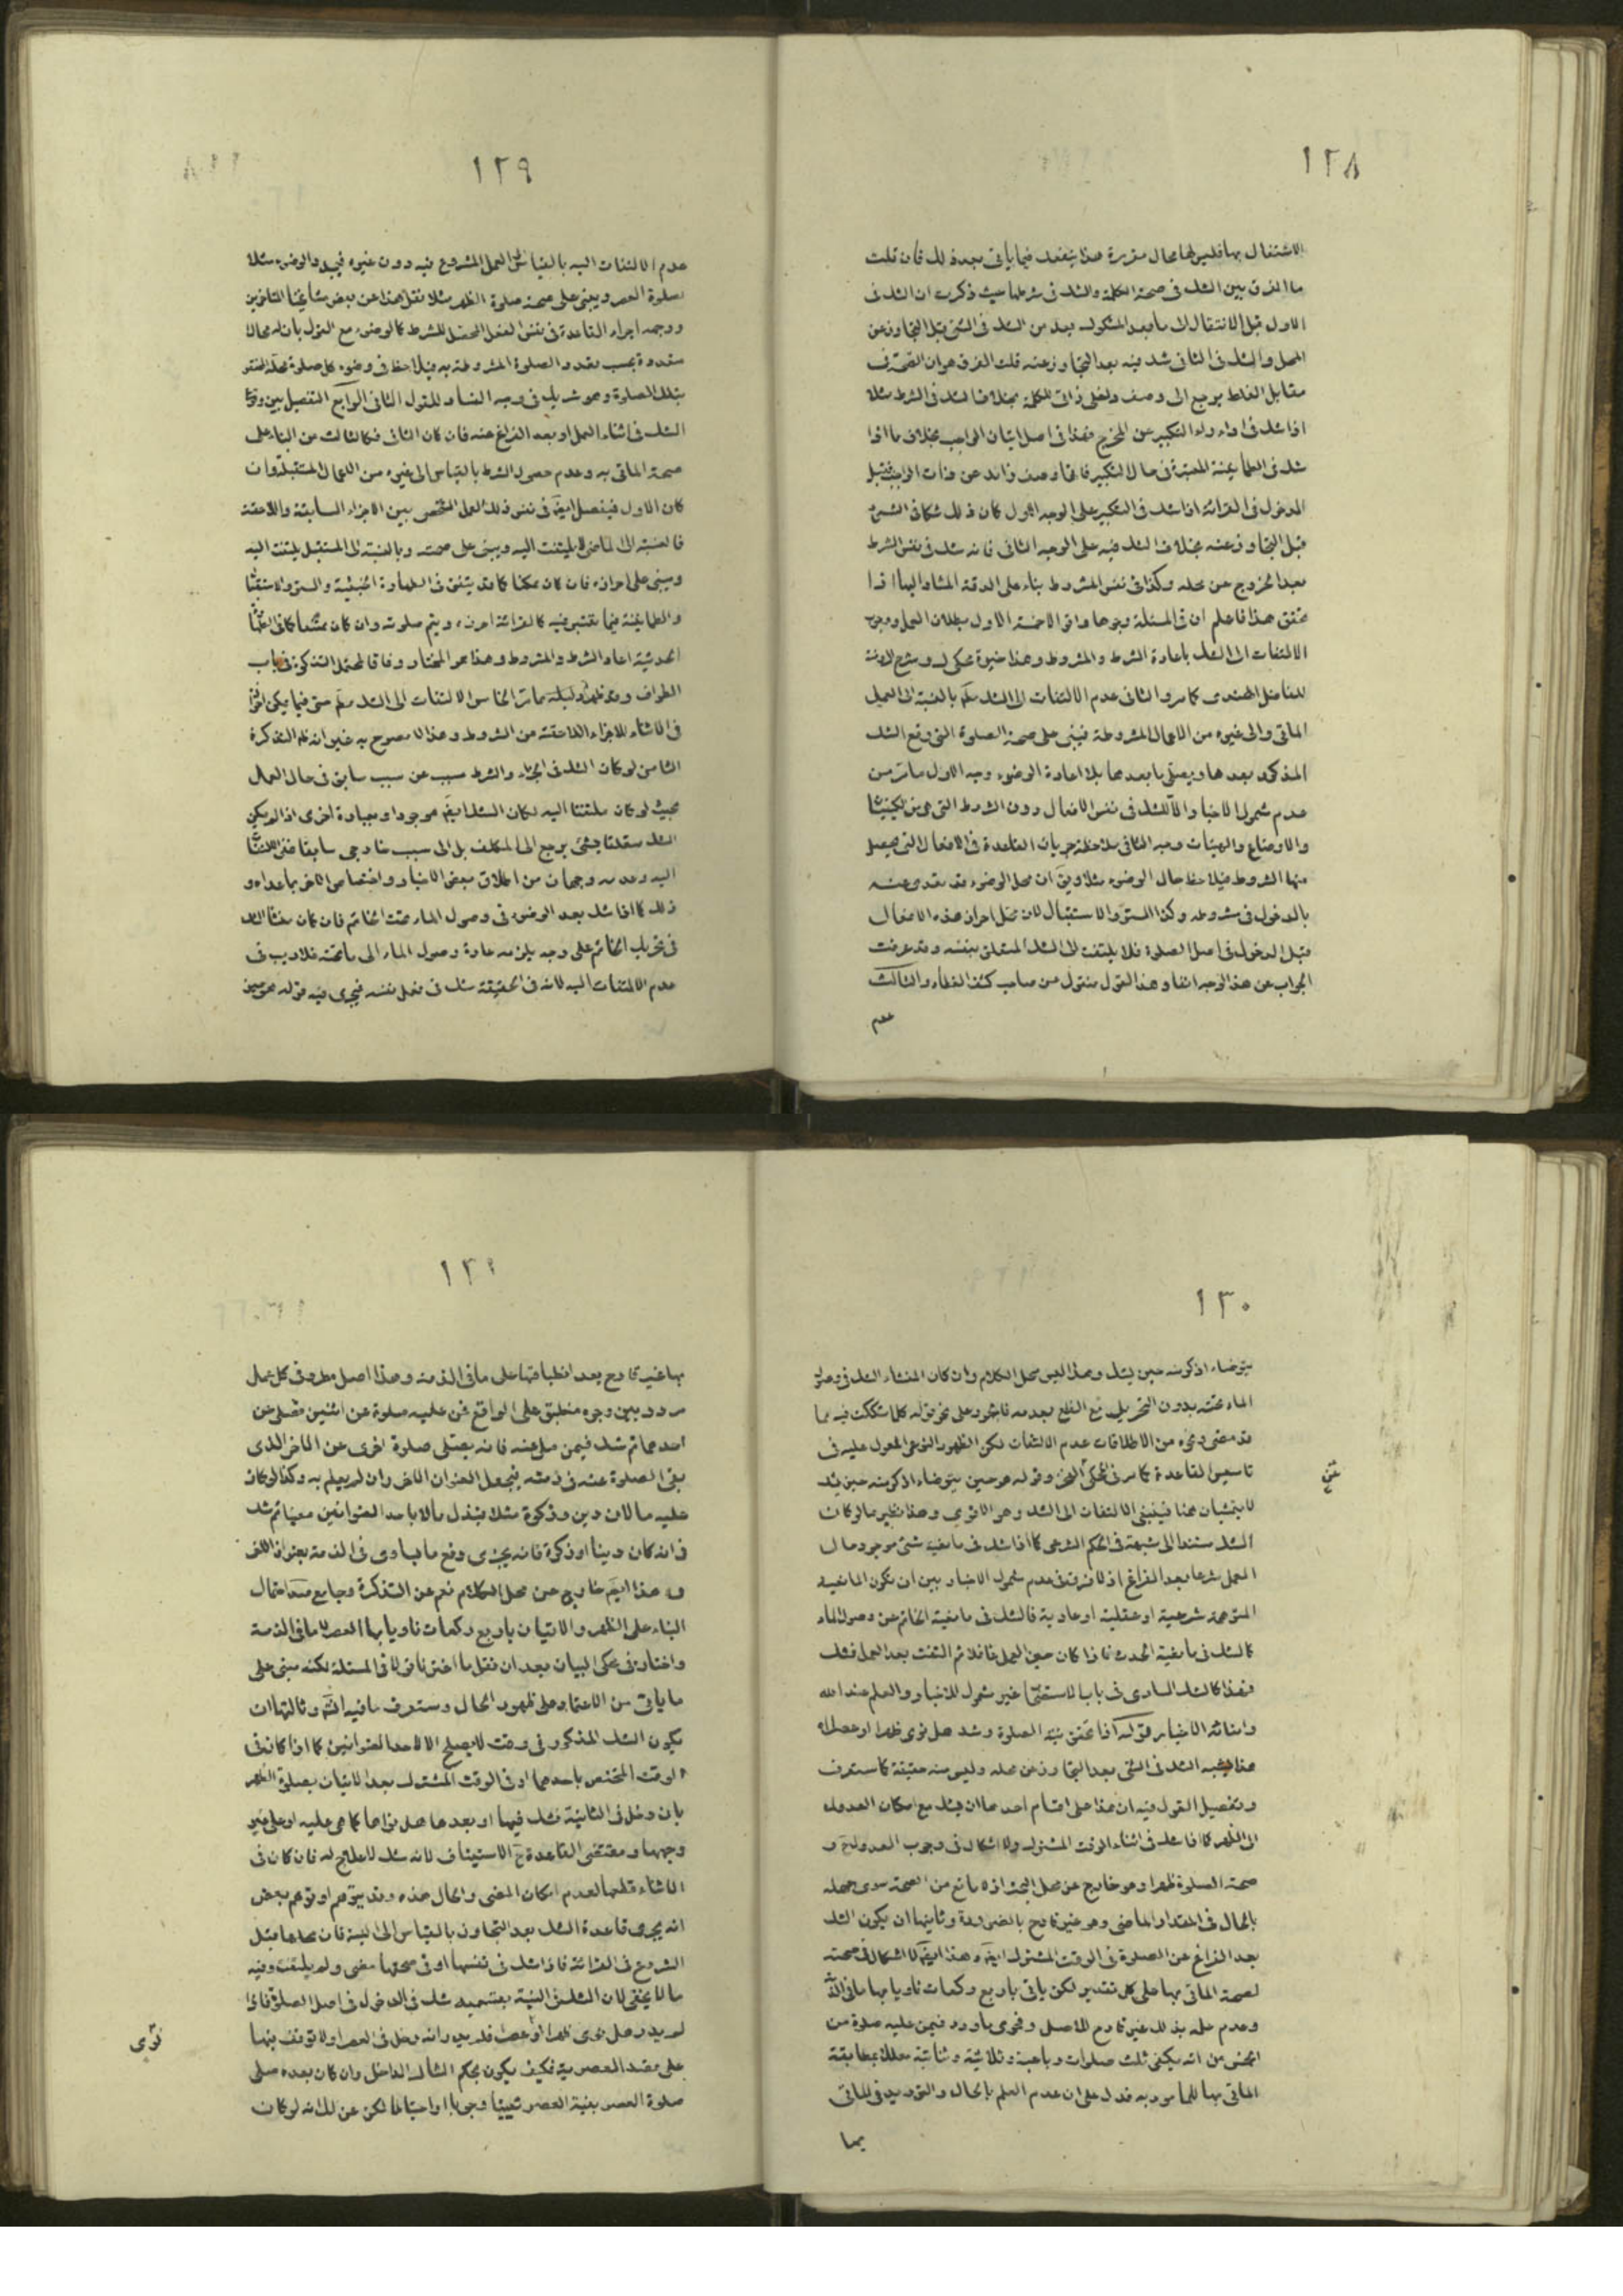 ١٢٨
الاشتغال بها فليس لها محال مقررة هذا ينفعك فيما يأتى بعد ذلك فان قلت
ما الفرق بين الشك فى صحة الكلمة والشك فى شرطها حيث ذكرت ان الشك فى
الاول قبل الانتقال الى ما بعد المشكوك يعد من الشك فى الشئ قبل التجاوز عن
المحل والشك فى الثانى شك فيه بعد التجاوز عنه قلت الفرق هو ان الصحة فى
مقابل الغلط يرجع الى وصف ذاتى للكلمة بخلاف الشك فى الشرط مثلا
اذا شك فى اداء راء التكبير عن المخرج فهذا فى اصل اتيان الواجب بخلاف ما اذا
شك فى الطمأنينة المعتبرة فى حال التكبير فانها وصف زائد عن ذات الواجب فقبل
الدخول فى القرائة اذا شك فى التكبير على الوجه الاول كان ذلك شكا فى الشئ
قبل التجاوز عنه بخلاف الشك فيه على الوجه الثانى فانه شك فى نفس الشرط
بعد الخروج عن محله وكذا فى نفس المشروط بناء على الدقة المشار اليها اذا
تحقق هذا فاعلم ان فى المسئلة وجوها واقوالا خمسة الاول بطلان العمل ووجوب
الالتفات الى الشك باعادة الشرط والمشروط وهذا خيرة محكى وشرح الروضة
للفاضل الهندى كما مر والثانى عدم الالتفات الى الشك مكم بالنسبة الى العمل
الماتى والى غيره من الاعمال المشروطة فيبنى على صحة الصلوة التى وقع الشك
المذكور بعدها ويصلى ما بعدها بلا اعادة الوضوء وجه الاول ما مر من
عدم شمول الاخبار الا للشك فى نفس الافعال دون الشروط التى هى من الكيفيات
والاوضاع والهيئات وجه الثانى ملاحظة جريان القاعدة فى الافعال التى يحصل
منها الشروط فيلاحظ حال الوضوء مثلا ويق ان محل الوضوء قد تعدى عنه
بالدخول فى مشروطه وكذا الستر والاستقبال لان محل احراز هذه الافعال
قبل الدخول فى اصل الصلوة فلا يلتفت الى الشك المتعلق بنفسه وقد عرفت
الجواب عن هذا الوجه انفا وهذا القول منقول من صاحب كشف الغطاء والثالث
عدم
١٢٩
عدم الالتفات اليه بالقياس الى العمل المشروع فيه دون غيره فيجدد الوضوء مثلا
لصلوة العصر ويبنى على صحة صلوة الظهر مثلا نقل هذا عن بعض مشايخنا المتاخرين
ووجهه اجراء القاعدة فى نفس الفعل المحصل للشرط كالوضوء مع القول بان له محالا
متعددة بحسب تعدد الصلوة المشروطة به فيلاحظ فى وضوء كل صلوة محله المتقرر
بتلك الصلوة وهو شريك فى وجه الفساد للقول الثانى الرابع التفصيل بين وقوع
الشك فى اثناء العمل او بعد الفراغ عنه فان كان الثانى فكالثالث من البناء على
صحة الماتى به وعدم حصول الشرط بالقياس الى غيره من الاعمال المستقبلة وان
كان الاول فيفصل ايضا فى نفس ذلك العمل الشخصى بين الاجزاء السابقة واللاحقة
فبالنسبة الى الماضى لا يلتفت اليه ويبنى على صحته وبالنسبة الى المستقبل يلتفت اليه
ويبنى على احرازه فان كان ممكنا كما قد يتفق فى الطهارة الخبثية والستر والاستقبال
والطمانينة فيما يعتبر فيه كالقرائة احرزه ويتم صلوته وان كان ممتنعا كما فى الطهارة
الحدثية اعاد الشرط والمشروط وهذا هو المختار وفاقا لمحتمل التذكرة فى باب
الطواف وقد ظهر دليله مما مر الخامس الالتفات الى الشك مكم حتى فيما يمكن احرازه
فى الاثناء للاجزاء اللاحقة من الشروط وهذا لا مصرح به غير انه ظ التذكرة
الثامن لو كان الشك فى الجزء والشرط سبب عن سبب سابق فى حال العمل
بحيث لو كان ملتفتا اليه لكان الشك ايضا موجودا وبعبارة اخرى اذا لم يكن
الشك متعلقا بشئ يرجع الى المكلف بل الى سبب خارجى سابقا ففى الالتفات
اليه وعدمه وجهان من اطلاق بعض الاخبار واختصاص الاخر بما عداه و
ذلك كما اذا شك بعد الوضوء فى وصول الماء تحت الخاتم فان كان منشا الشك
فى تحريك الخاتم على وجه يلزمه عادة وصول الماء الى ما تحته فلا ريب فى
عدم الالتفات اليه لانه فى الحقيقة شك فى فعل نفسه فيجرى فيه قوله هو حين
١٣٠
يتوضاء اذكر منه حين يشك وهذا ليس محل الكلام وان كان المنشاء الشك فى وصول
الماء تحته بدون التحريك مع القطع بعدمه فالجمود على نحو قوله كلما شككت فيه مما
قد مضى وغيره من الاطلاقات عدم الالتفات لكن الظهور النوعى المعول عليه فى
تاسيس القاعدة كما مر فى المحكى وقوله هو حين يتوضاء اذكر منه حين يشك
لا يتمشيان هنا فينبغى الالتفات الى الشك وهو الاقوى وهذا نظير ما لو كان
الشك مستندا الى شبهة فى الحكم الشرعى كما اذا شك فى مانعية شئ موجود حال
العمل شرعا بعد الفراغ اذ لا فرق فى عدم شمول الاخبار بين ان تكون المانعية
المتوهمة شرعية او عقلية او عادية فالشك فى مانعية الخاتم عن وصول الماء
كالشك فى مانعية الحدث فاذا كان حين العمل غافلا ثم التفت بعد العمل فشك
فهذا كالشك السارى فى باب الاستصحاب غير مشمول للاخبار والعلم عند الله
وامنائه الاخيار قوله اذا تحقق نية الصلوة وشك هل نوى ظهرا او عصرا اه
هذا يشبه الشك فى الشئ بعد التجاوز عن محله وليس منه حقيقة كما ستعرف
وتفصيل القول فيه ان هذا على اقسام احدها ان يشك مع امكان العدول
الى الظهر كما اذا شك فى اثناء الوقت المشترك ولا اشكال فى وجوب العدول ح و
صحة الصلوة ظهرا وهو خارج عن محل البحث اذ لا مانع من الصحة سوى جهله
بالحال فى المقدار الماضى وهو غير قادح بالضرورة وثانيها ان يكون الشك
بعد الفراغ عن الصلوة فى الوقت المشترك ايضا وهذا ايضا لا اشكال فى صحته
لصحة الماتى بها على كل تقدير لكن ياتى باربع ركعات ناويا بها ما فى الذمة
وعدم علمه بذلك غير قادح للاصل وفحوى ما ورد فيمن عليه صلوة من
الخمس من انه يكفى ثلث صلوات رباعية وثلاثية وثنائية معللا بمطابقة
الماتى بها للمامور به فدل على ان عدم العلم بالحال والترديد فى الماتى
بها
١٣١
بها غير قادح بعد انطباقها على ما فى الذمة وهذا اصل مطرد فى كل عمل
مردد بين وجوه منطبق على الواقع فمن عليه صلوة عن اثنين فصلى عن
احدهما ثم شك فيمن صلى عنه فانه يصلى صلوة اخرى عن الاخر الذى
بقى الصلوة عنه فى ذمته فيجعل العنوان الاخر وان لم يعلم به وكذا لو كان
عليه مالان دين وزكوة مثلا فبذل مالا باحد العنوانين معينا ثم شك
فى انه كان دينا او زكوة فانه يجزى دفع ما يساوى فى الذمة بعنوان اللف
و هذا ايضا خارج عن محل الكلام نعم عن التذكرة وجامع صد احتمال
البناء على الظهر والاتيان باربع ركعات ناويا بها العصر لا ما فى الذمة
واختاره فى محكى البيان بعد ان نقل ما اخترناه فى المسئلة لكنه مبنى على
ما ياتى من الاعتماد على ظهور الحال وستعرف ما فيه انشاء الله وثالثها ان
يكون الشك المذكور فى وقت لا يصلح الا لاحد العنوانين كما اذا كان فى
الوقت المختص باحدهما او فى الوقت المشترك بعد الاتيان بصلوة الظهر
بان دخل فى الثانية فشك فيها او بعدها هل نواها كما هى عليه او على غير
وجهها ومقتضى القاعدة ح الاستيناف لانه شك لا علاج له فان كان فى
الاثناء قطعها لعدم امكان المضى والحال هذه وقد يتوهم او توهم بعض
انه يجرى قاعدة الشك بعد التجاوز بالقياس الى النية فان محلها قبل
الشروع فى القرائة فاذا شك فى نفسها او فى صحتها مضى ولم يلتفت وفيه
ما لا يخفى لان الشك فى النية بقسميه شك فى الدخول فى اصل الصلوة فاذا
لم يدر هل نوى ظهرا او عصرا فلم يدر انه دخل فى العصر او لا توقفها
على قصد العصرية فكيف يكون بحكم الشاك الداخل وان كان بعده صلى
صلوة العصر بنية العصر تعيينا وجوبا او احتياطا لكن عن لك انه لو كان